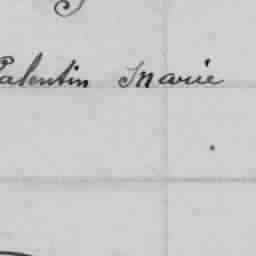 Valentin Marie